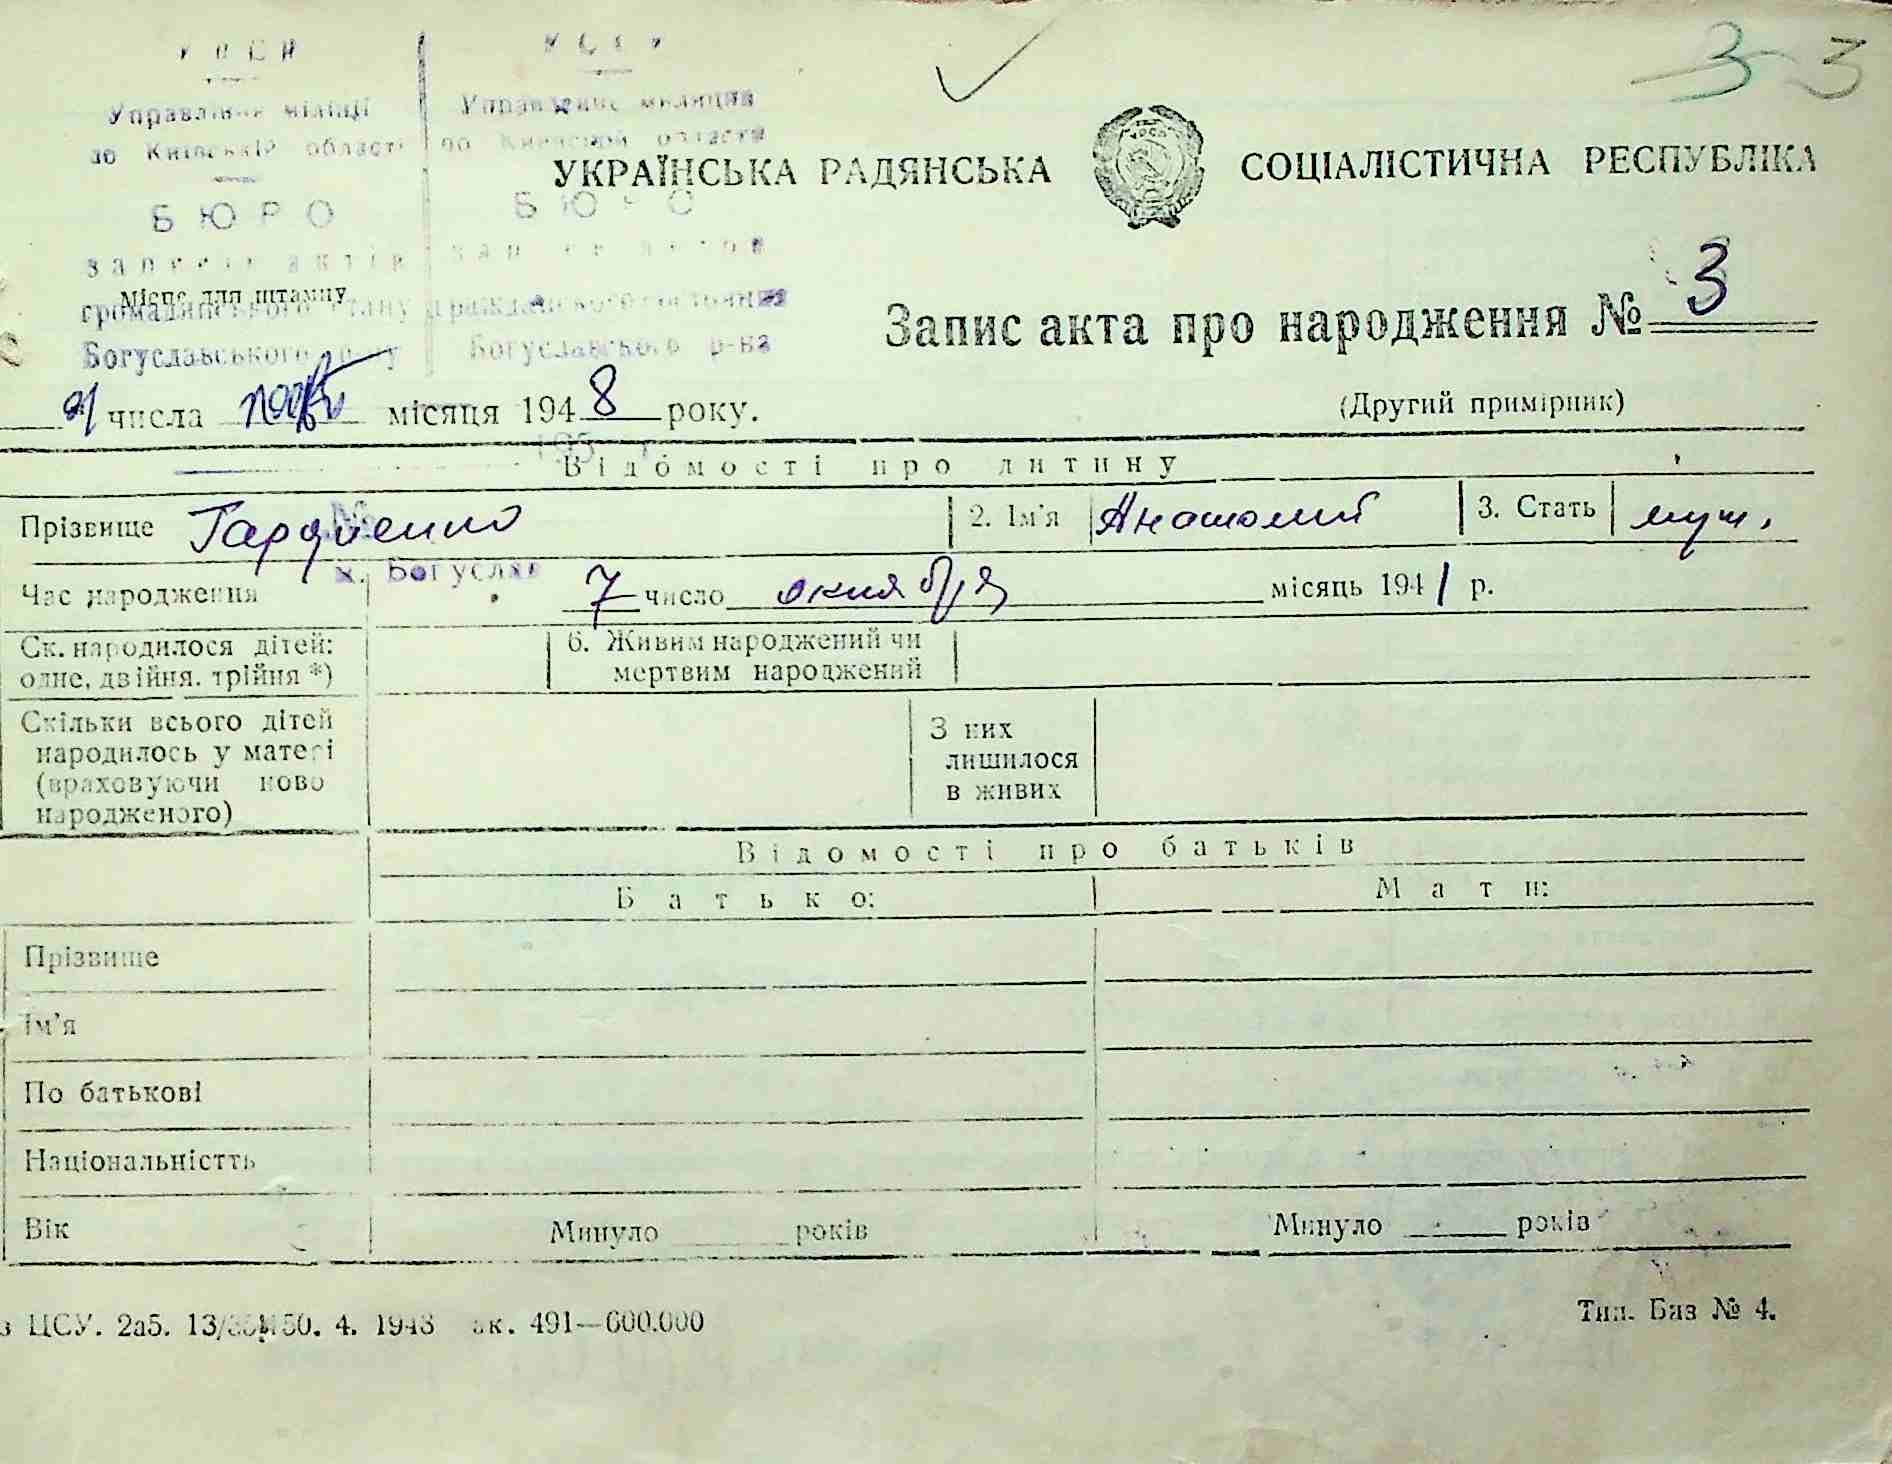 3 3
Управління міліції Управление милиции
по Київській області по Киевской области
УКРАЇНСЬКА РАДЯНСЬКА СОЦІАЛІСТИЧНА РЕСПУБЛІКА
БЮРО БЮРО
записів актів записи актов
Місце для штампу
громадянського стану гражданского состояния
Запис акта про народження № 3
Богуславського р-ну Богуславского р-на
числа місяця 1948 року.
(Другий примірник)
195
Відомості про дитину
№
Прізвище 2. Ім'я Анатолий 3. Стать муж.
м. Богуслав
Час народження 7 число октября місяць 1941 р.
Ск. народилося дітей: 6. Живим народжений чи
одне, двійня. трійня *) мертвим народжений
Скільки всього дітей З них
народилось у матері лишилося
(враховуючи ново в живих
народженого)
Відомості про батьків
Батько: Мати:
Прізвище
Ім'я
По батькові
Національністть
Вік Минуло років Минуло років
ЦСУ. 2а5. 50. 4. 1948 491—600.000 Тип. Баз № 4.